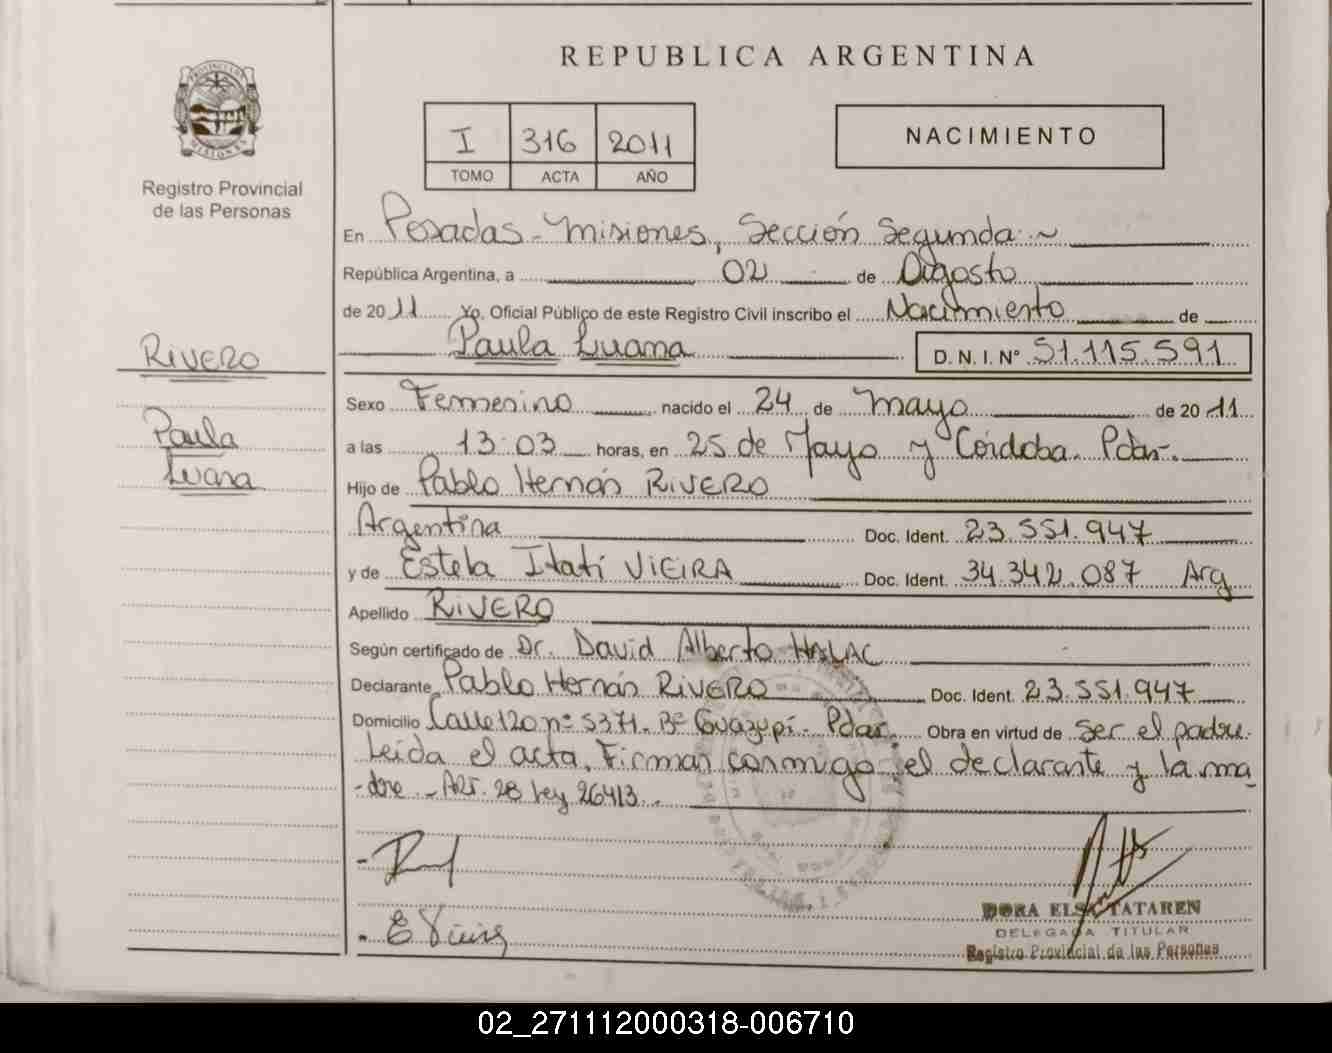 REPUBLICA ARGENTINA
I 316 2011
TOMO ACTA AÑO
NACIMIENTO
Registro Provincial
de las Personas
En Posadas - Misiones, Sección Segunda
República Argentina, a 02 de Agosto
de 2011 Yo, Oficial Público de este Registro Civil inscribo el Nacimiento de
Paula Luana D.N.I. Nº 51.115.591
RIVERO
Paula
Luana
Sexo Femenino nacido el 24 de mayo de 2011
a las 13:03 horas, en 25 de Mayo y Córdoba. Pdas.
Hijo de Pablo Hernán RIVERO
Argentina Doc. Ident. 23.551.947
y de Estela Itatí VIEIRA Doc. Ident. 34.342.087 Arg
Apellido RIVERO
Según certificado de Dr. David Alberto HALAC
Declarante Pablo Hernán RIVERO Doc. Ident. 23.551.947
Domicilio Calle 120 nº 5371. Bº Guazupí - Pdas. Obra en virtud de ser el padre.
Leída el acta, Firman conmigo, el declarante y la ma
-dre - Art. 28 Ley 26413.
E Vieira
DORA ELSA TATAREN
DELEGADA TITULAR
Registro Provincial de las Personas
02_271112000318-006710